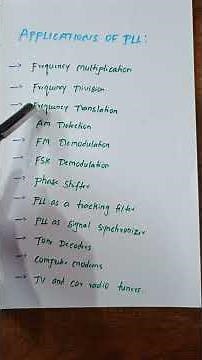 APPLICATIONS OF PLL:
→ Frequency Multiplication
→ Frequency Division
→ Frequency Translation
AM Detection
→ FM Demodulation
→ FSK Demodulation
→ Phase Shifter
→ PLL as a tracking filter
→ PLL as signal synchronizer
→ Tone Decoders
→ Computer modems
→ TV and car radio tuners.